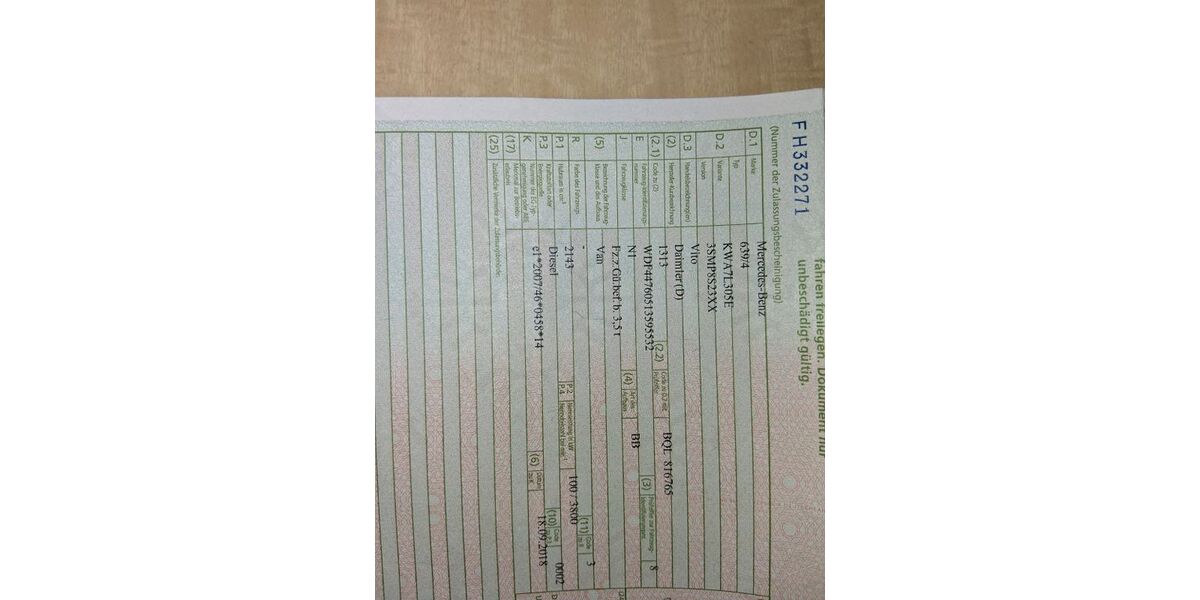 fahren freilegen. Dokument nur
unbeschädigt gültig.
FH332271
(Nummer der Zulassungsbescheinigung)
D.1 Marke Mercedes-Benz
Typ 639/4
D.2 Variante KWA7L305E
Version 3SMP8S23XX
D.3 Handelsbezeichnung(en) Vito
(2) Hersteller-Kurzbezeichnung Daimler (D)
(2.1) Code zu (2) 1313 (2.2) Code zu D.2 mit Prüfziffer BQL 816765
E Fahrzeug-Identifizierungsnummer WDF44760513595532 (3) Prüfziffer zur Fahrzeug-Identifizierungsnr. 8
J Fahrzeugklasse N1 (4) Art des Aufbaus BB
(5) Bezeichnung der Fahrzeugklasse und des Aufbaus Fz.z.Gü.bef. b. 3,5 t
Van
R Farbe des Fahrzeugs - (11) Code zu R 3
P.1 Hubraum in cm³ 2143 P.2 P.4 Nennleistung in kW 100/3800
P.3 Kraftstoffart oder Energiequelle Diesel (10) Code zu P.3 0002
K Nummer der EG-Typgenehmigung oder ABE e1*2007/46*0458*14 (6) Datum zu K 18.09.2018
(17) Merkmal zur Betriebserlaubnis
(25) Zusätzliche Vermerke der Zulassungsbehörde